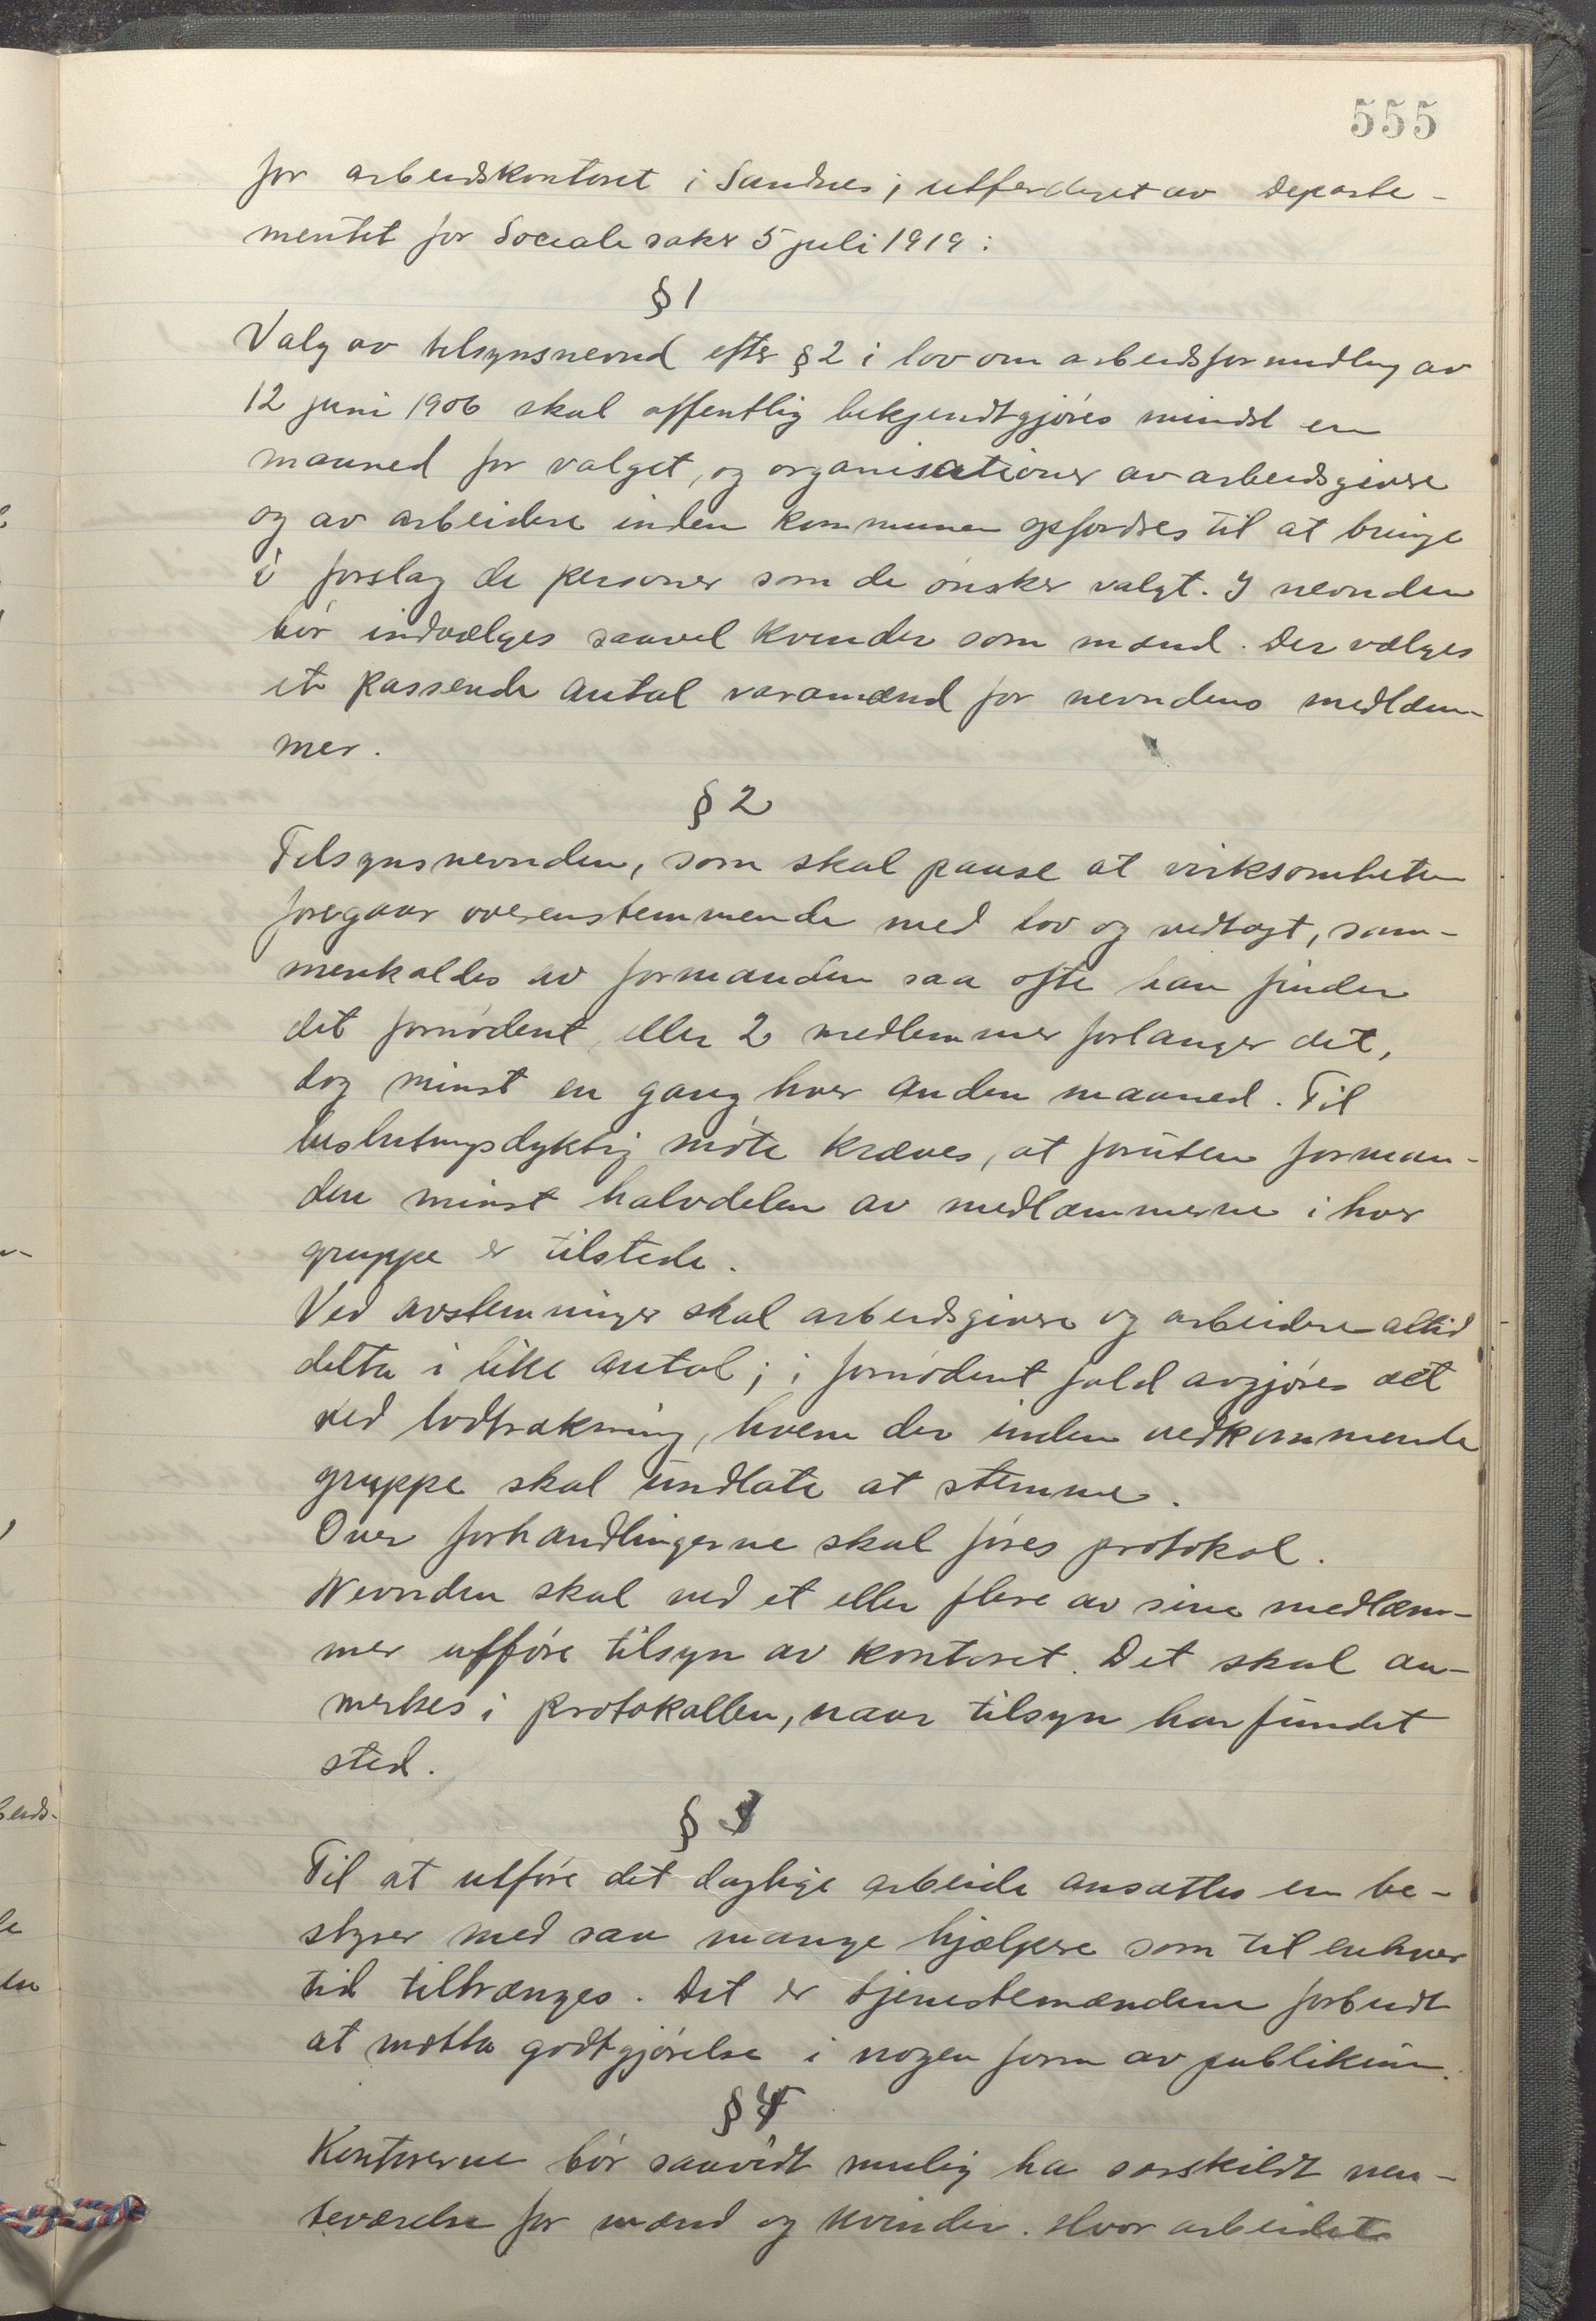 555
for arbeidskontoret i Sandnes; utferdiget av Departe-
mentet for Sociale saker 5 juli 1919:
§ 1
Valg av tilsynsnevnd efter § 2 i lov om arbeidsformidling av
12 juni 1906 skal offentlig bekjendtgjøres mindst en
maaned for valget, og organisationer av arbeidsgivere
og av arbeidere inden kommunen opfordres til at bringe
i forslag de personer som de ønsker valgt. I nevnden
bør indvælges saavel kvinder som mænd. Der vælges
et passende antal varamænd for nevndens medlem-
mer.
§ 2
Tilsynsnevnden, som skal paase at virksomheten
foregaar overenstemmende med lov og vedtægt, sam-
menkaldes av formanden saa ofte han finder
det fornødent, eller 2 medlemmer forlanger det,
dog minst en gang hver anden maaned. Til
beslutningsdyktig møte kræves, at foruten forman-
den minst halvdelen av medlæmmerne i hver
gruppe er tilstede.
Ved avstemninger skal arbeidsgivere og arbeidere altid
delta i like antal; i fornødent fald avgjøres det
ved lodtrækning, hvem der inden vedkommende
gruppe skal undlate at stemme.
Over forhandlingerne skal føres protokol.
Nevnden skal ved et eller flere av sine medlæm-
mer utføre tilsyn av kontoret. Det skal an-
merkes i protokollen, naar tilsyn har fundet
sted.
§ 3
Til at utføre det daglige arbeide ansættes en be-
styrer med saa mange hjælpere som til enhver
tid tiltrænges. Det er tjenestemændene forbudt
at motta godtgjørelse i nogen form av publikum.
§ 4
Kontorerne bør saavidt mulig ha særskildt ven-
teværelse for mænd og kvinder. Hvor arbeidet